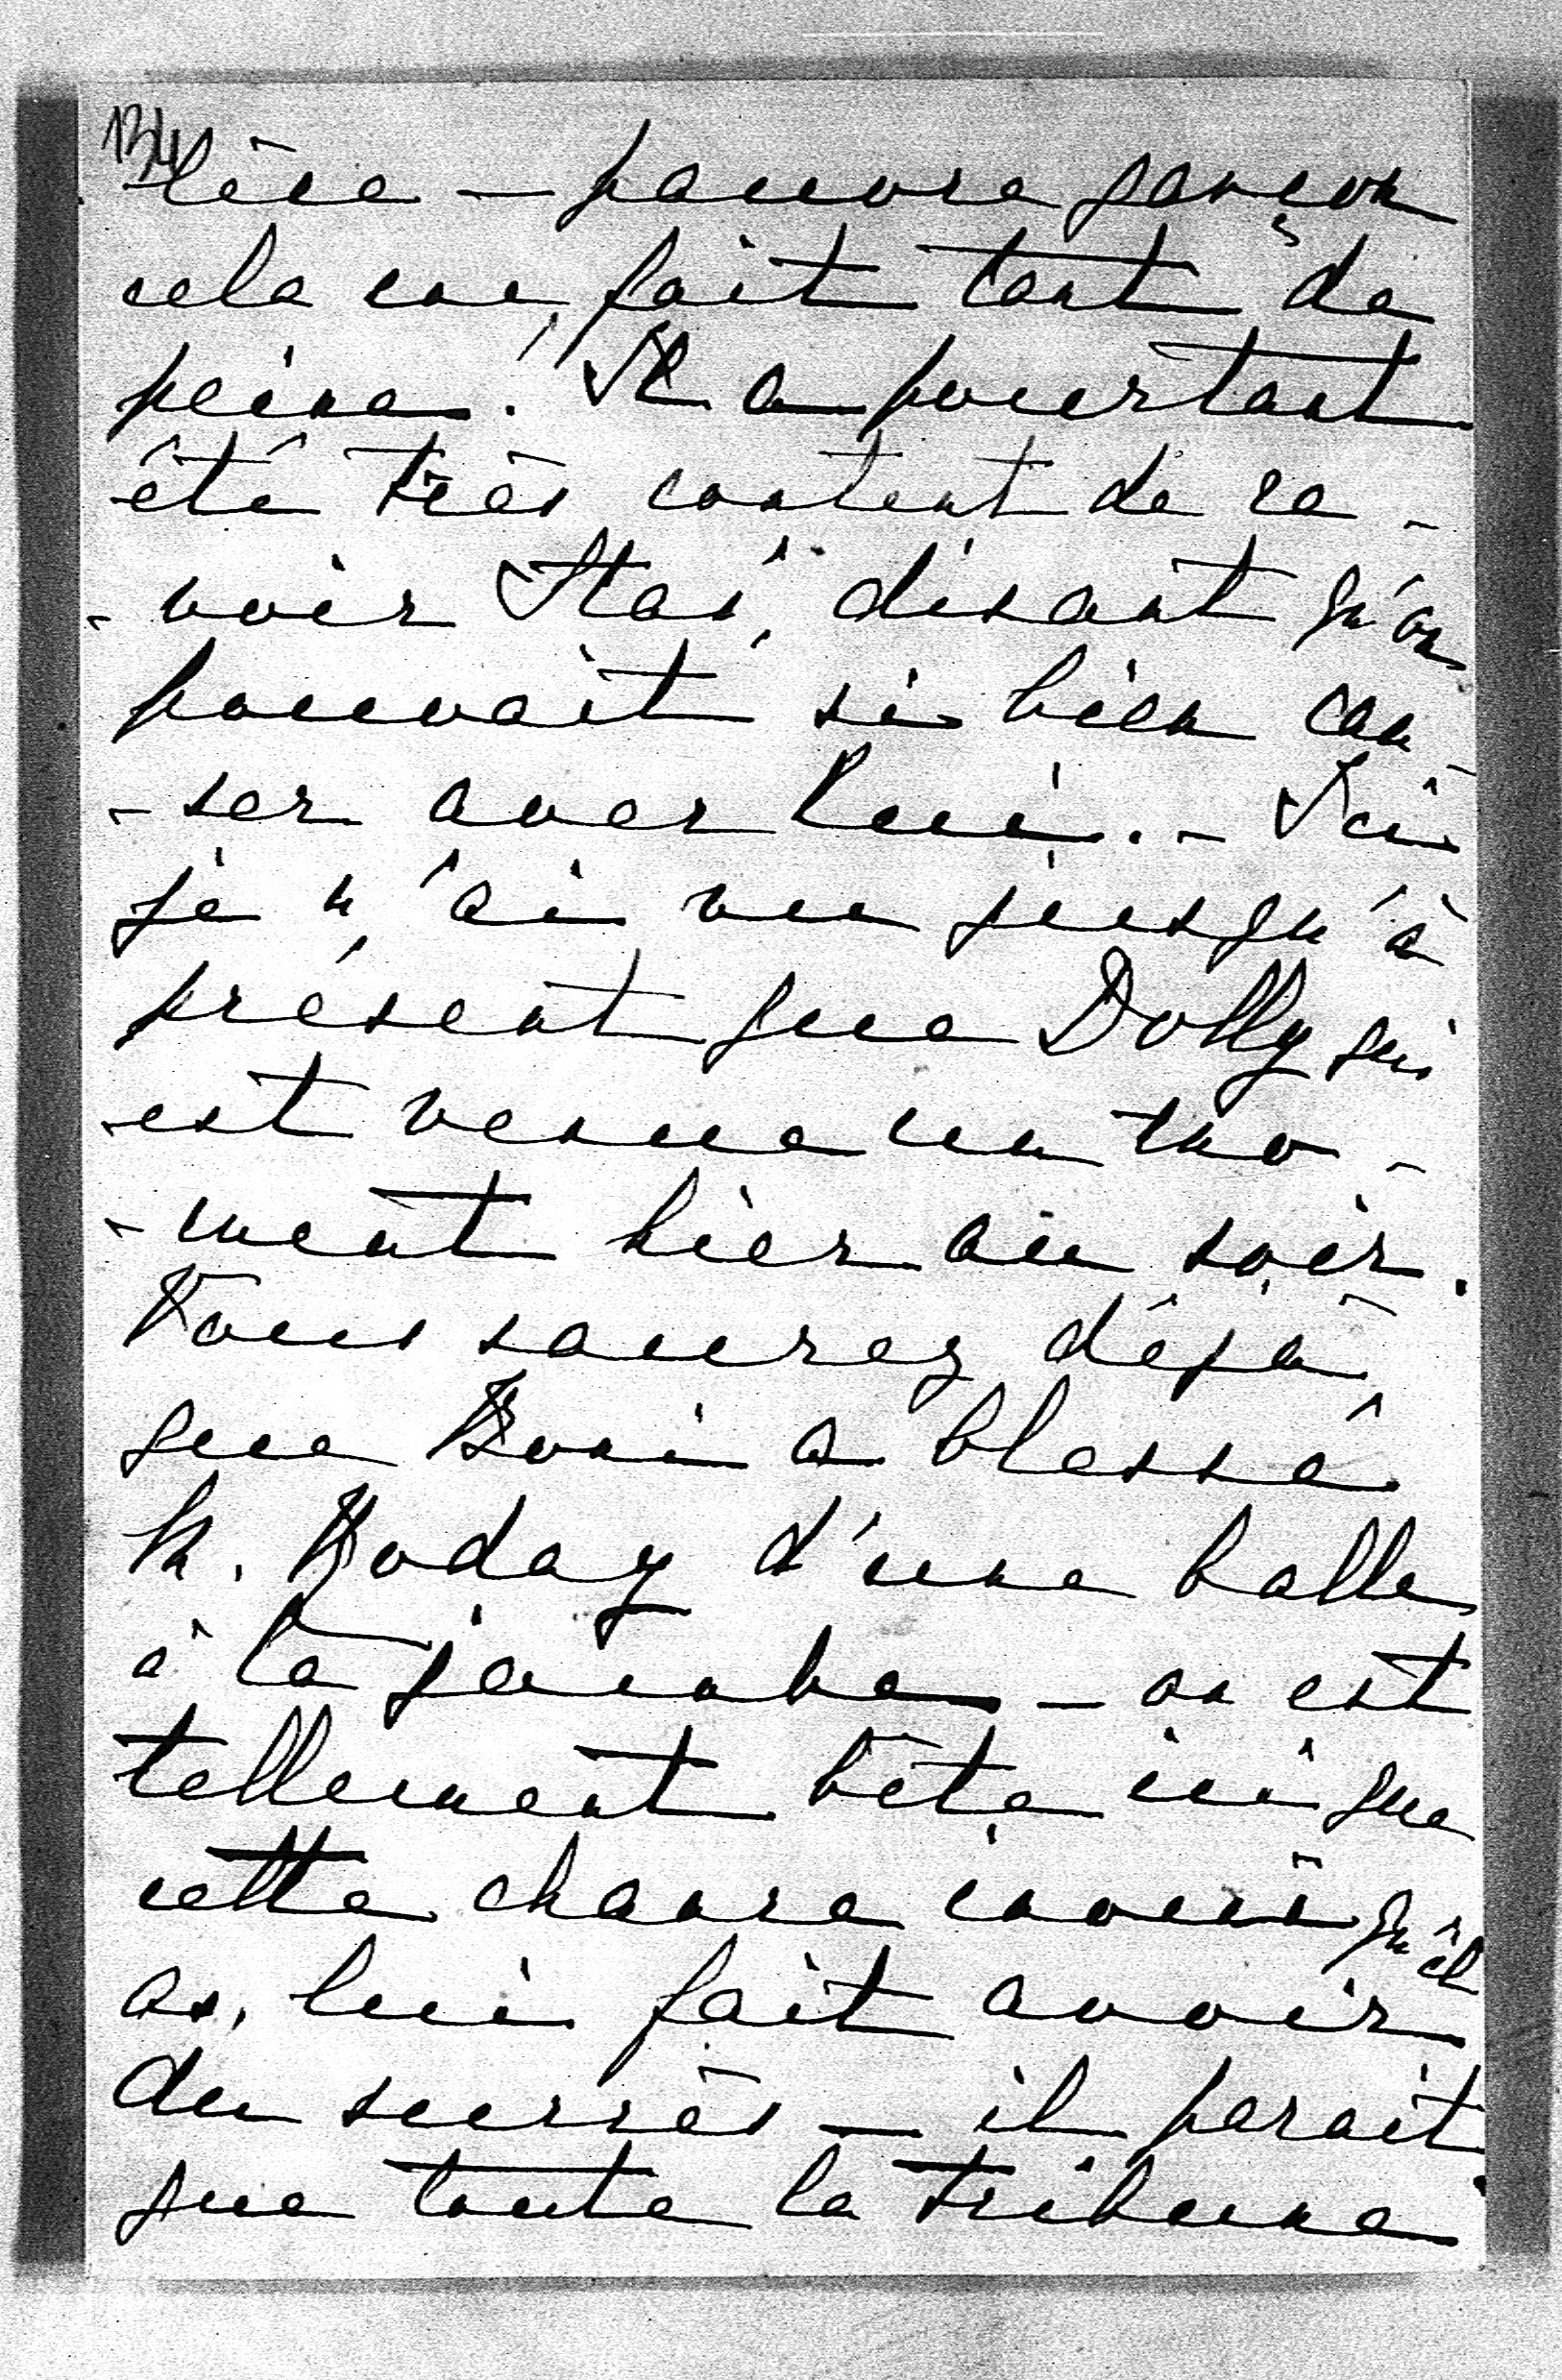 134
tête — pauvre garçon
cela me fait tant de
peine! Il a pourtant
été très content de re-
-voir Stas, disant qu'on
pouvait si bien cau-
-ser avec lui. - Ici
je n'ai vu jusqu'à
présent que Dolly qui
est venue un mo-
-ment hier au soir.
Vous saurez déjà
que Boni a blessé
M. Roday d'une balle
à la jambe — on est
tellement bête ici que
cette chance inouïe qu'il
a, lui fait avoir
du succès — il parait
que toute la tribune